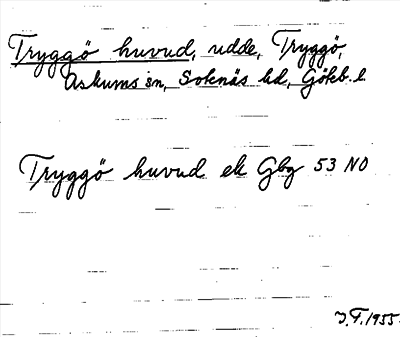 Tryggö huvud, udde, Tryggö,
Askums sn, Sotenäs hd, Göteb. l.
Tryggö huvud ek Gbg 53 NO
J.F. 1955.